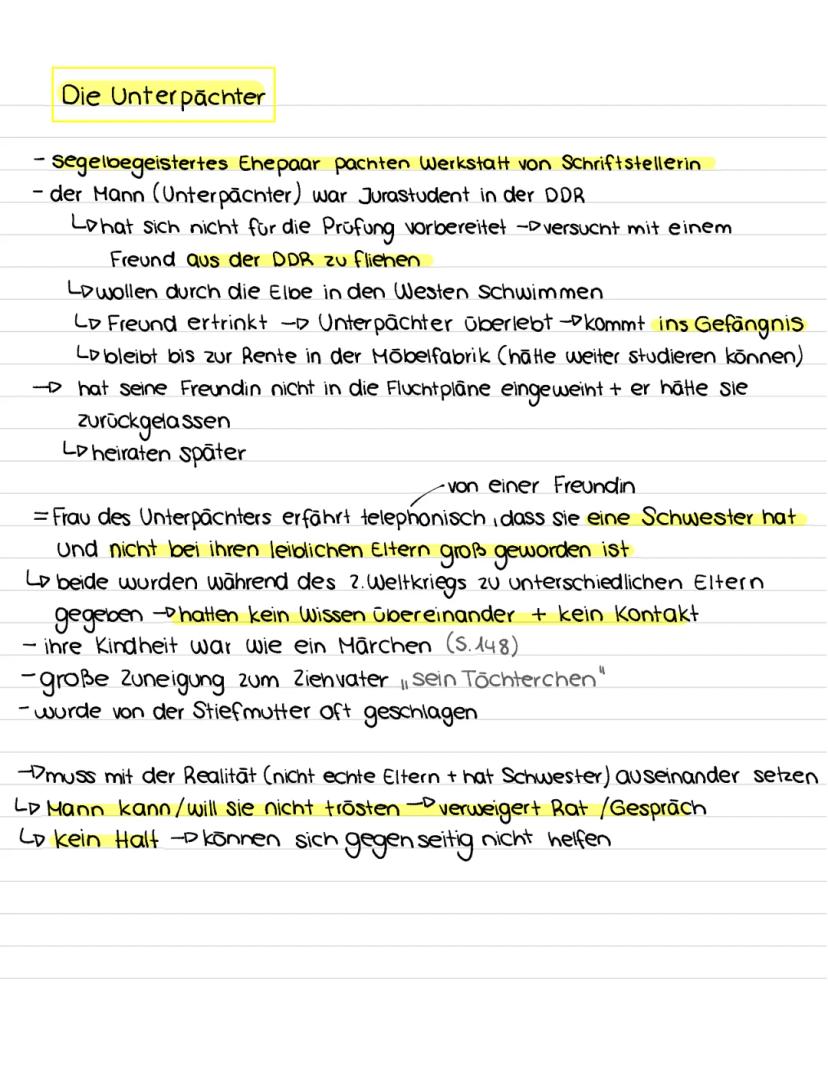 Die Unterpächter
- segelbegeistertes Ehepaar pachten Werkstatt von Schriftstellerin
- der Mann (Unterpächter) war Jurastudent in der DDR
↳ hat sich nicht für die Prüfung vorbereitet → versucht mit einem
Freund aus der DDR zu fliehen
↳ wollen durch die Elbe in den Westen schwimmen
↳ Freund ertrinkt → Unterpächter überlebt → kommt ins Gefängnis
↳ bleibt bis zur Rente in der Möbelfabrik (hätte weiter studieren können)
→ hat seine Freundin nicht in die Fluchtpläne eingeweint + er hätte sie
zurückgelassen
↳ heiraten später
von einer Freundin
= Frau des Unterpächters erfährt telephonisch, dass sie eine Schwester hat
und nicht bei ihren leiblichen Eltern groß geworden ist
↳ beide wurden während des 2. Weltkriegs zu unterschiedlichen Eltern
gegeben → hatten kein Wissen übereinander + kein Kontakt
- ihre Kindheit war wie ein Märchen (S. 148)
- große Zuneigung zum Ziehvater „sein Töchterchen"
- wurde von der Stiefmutter oft geschlagen
→ muss mit der Realität (nicht echte Eltern + hat Schwester) auseinander setzen
↳ Mann kann/will sie nicht trösten → verweigert Rat /Gespräch
↳ kein Halt → können sich gegenseitig nicht helfen